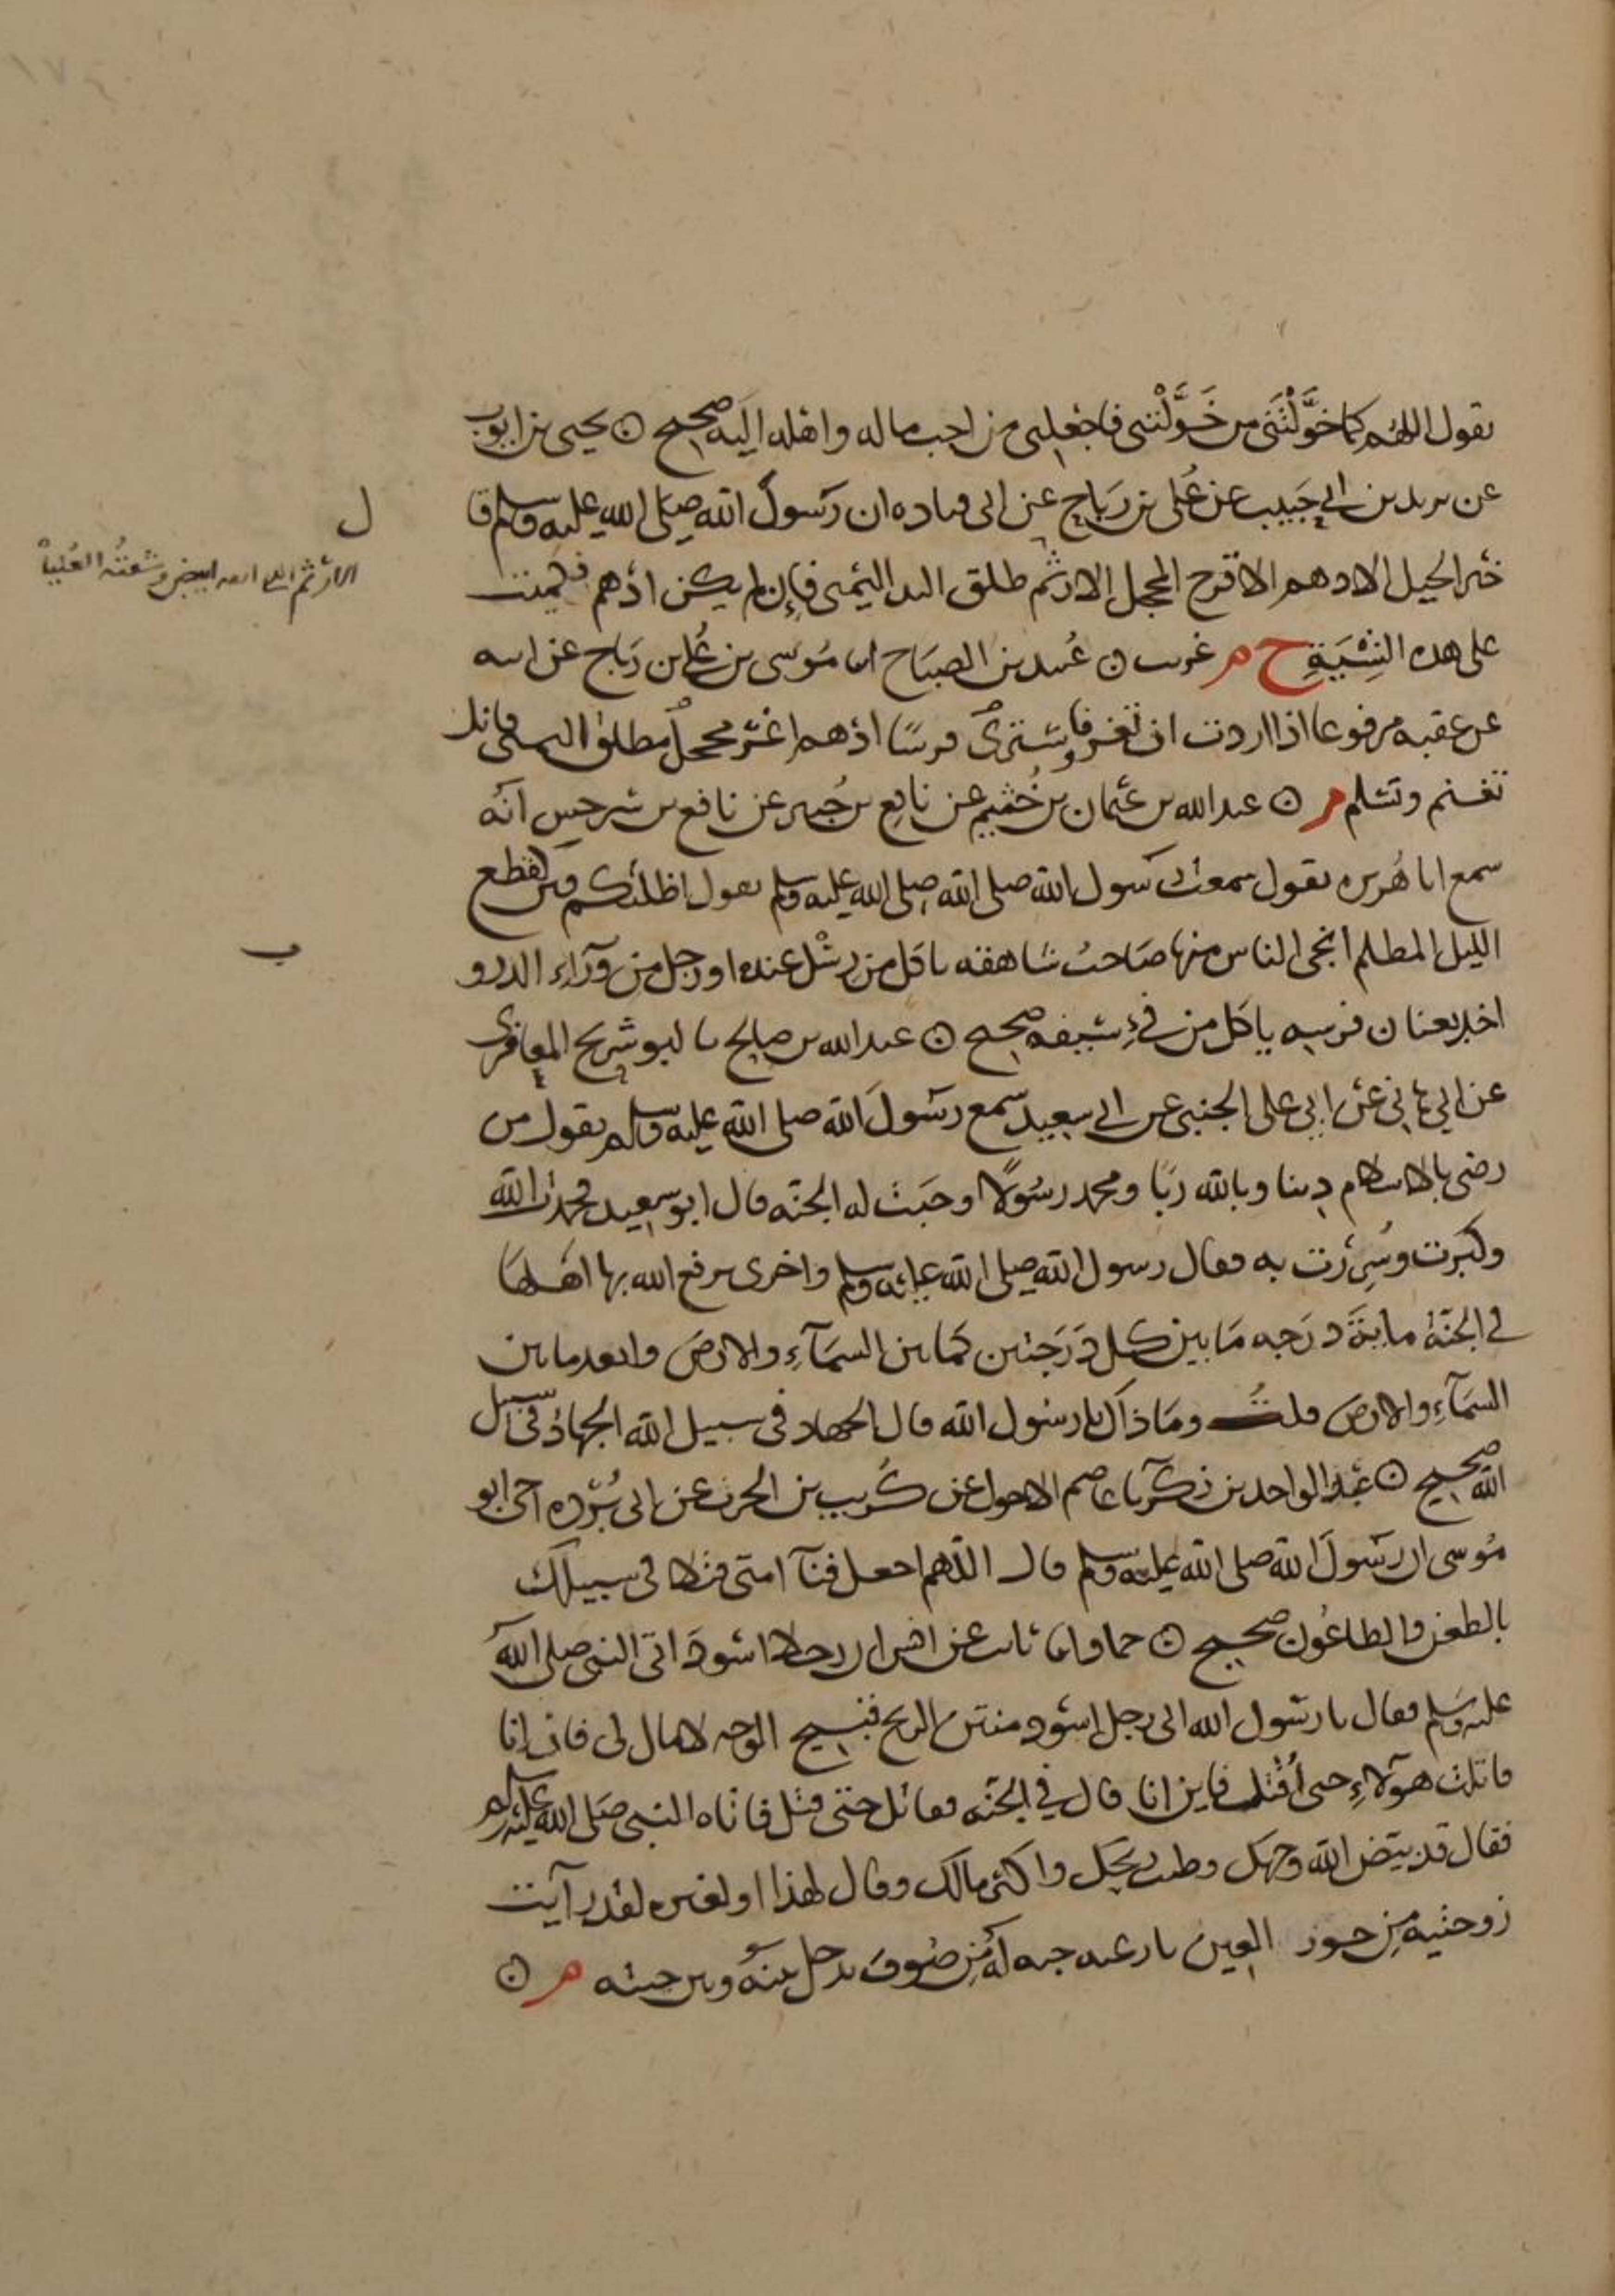 يقول اللهم كما خَوَّلْتَنى من خَوَّلْتنى فاجعلنى من احب ماله واهله اليه صحيح ۞ يحيى بن ايوب
عن يزيد بن ابى حبيب عن عُلى بن رَبَاح عن ابى قتاده ان رسول الله صلى الله عليه وسلم قا
خير الخيل الادهم الاقرح المحجل الارثم طلق اليد اليمنى فإن لم يكن ادهم فكميت
على هذه الشِيَةِ خ م غريب ۞ عُبيد بن الصباح انا موسى بن عُلى بن رَباح عن ابيه
عن عقبه مرفوعا اذا اردت ان تغزو فاشترى فرسًا ادهم اغر محجل مطلق اليمنى فانك
تغنم وتسلم م ۞ عبد الله بن عثمان بن خُثيم عن نافِع بن جُبير عن نافع بن سرجس انه
سمع ابا هُريره يقول سمعت رسول الله صلى الله صلى الله عليه وسلم يقول اظلتكم فتن كقطع
الليل المظلم انجى الناس منها صاحبُ شاهقه ياكل من رِسْل غنمه او رجل من وراء الدرو
اخذ بعنان فرسه ياكل من فىءِ سيفه صحيح ۞ عبد الله بن صالح نا ابو شريح المعافرى
عن ابى هانى عن ابى على الجنبى عن ابى سعيد سمع رسول الله صلى الله عليه وسلم يقول من
رضى بالاسلام دينا وبالله ربًا ومحمد رسُولًا وجَبَت له الجنه قال ابو سعيد فحمدت الله
وكبرت وسُرِرت به فقال رسول الله صلى الله عليه وسلم واخرى يرفع الله بها اهلها
فى الجنة ماية درَجه ما بين كل درَجتين كما بين السمآءِ والارض وابعد ما بين
السمآءِ والارض قلت وما ذاك يا رسول الله قال الجهاد فى سبيل الله الجهادُ فى سبيل
الله صحيح ۞ عبد الواحد بن زياد نا عاصم الاحول عن كريب بن الحرث عن ابى بُرْده اخى ابو
مُوسى ان رسول الله صلى الله عليه وسلم قال اللهم اجعل فنآ امتى قتلا فى سبيلك
بالطعن والطاعُون صحيح ۞ حماد انا ثابت عن انس ان رجلا اسودَ اتى النبى صلى الله
عليه وسلم فقال يا رسول الله انى رجل اسود منتن الريح قبيح الوجه لا مال لى فان انا
قاتلت هوَلآءِ حتى أُقتل فاين انا قال فى الجنه فقاتل حتى قتل فاتاه النبى صلى الله عليه وسلم
فقال قد بيض الله وجهك وطيب ريحك واكثر مالك وقال لهذا او لغيره لقد رآيت
زوجتيه مِن حور العين نازعته جبه له مِن صُوف تدخل بينه وبين جبته م ۞
ل
الارثم الذى انفه ابيض وشفتُه العُليا
ب